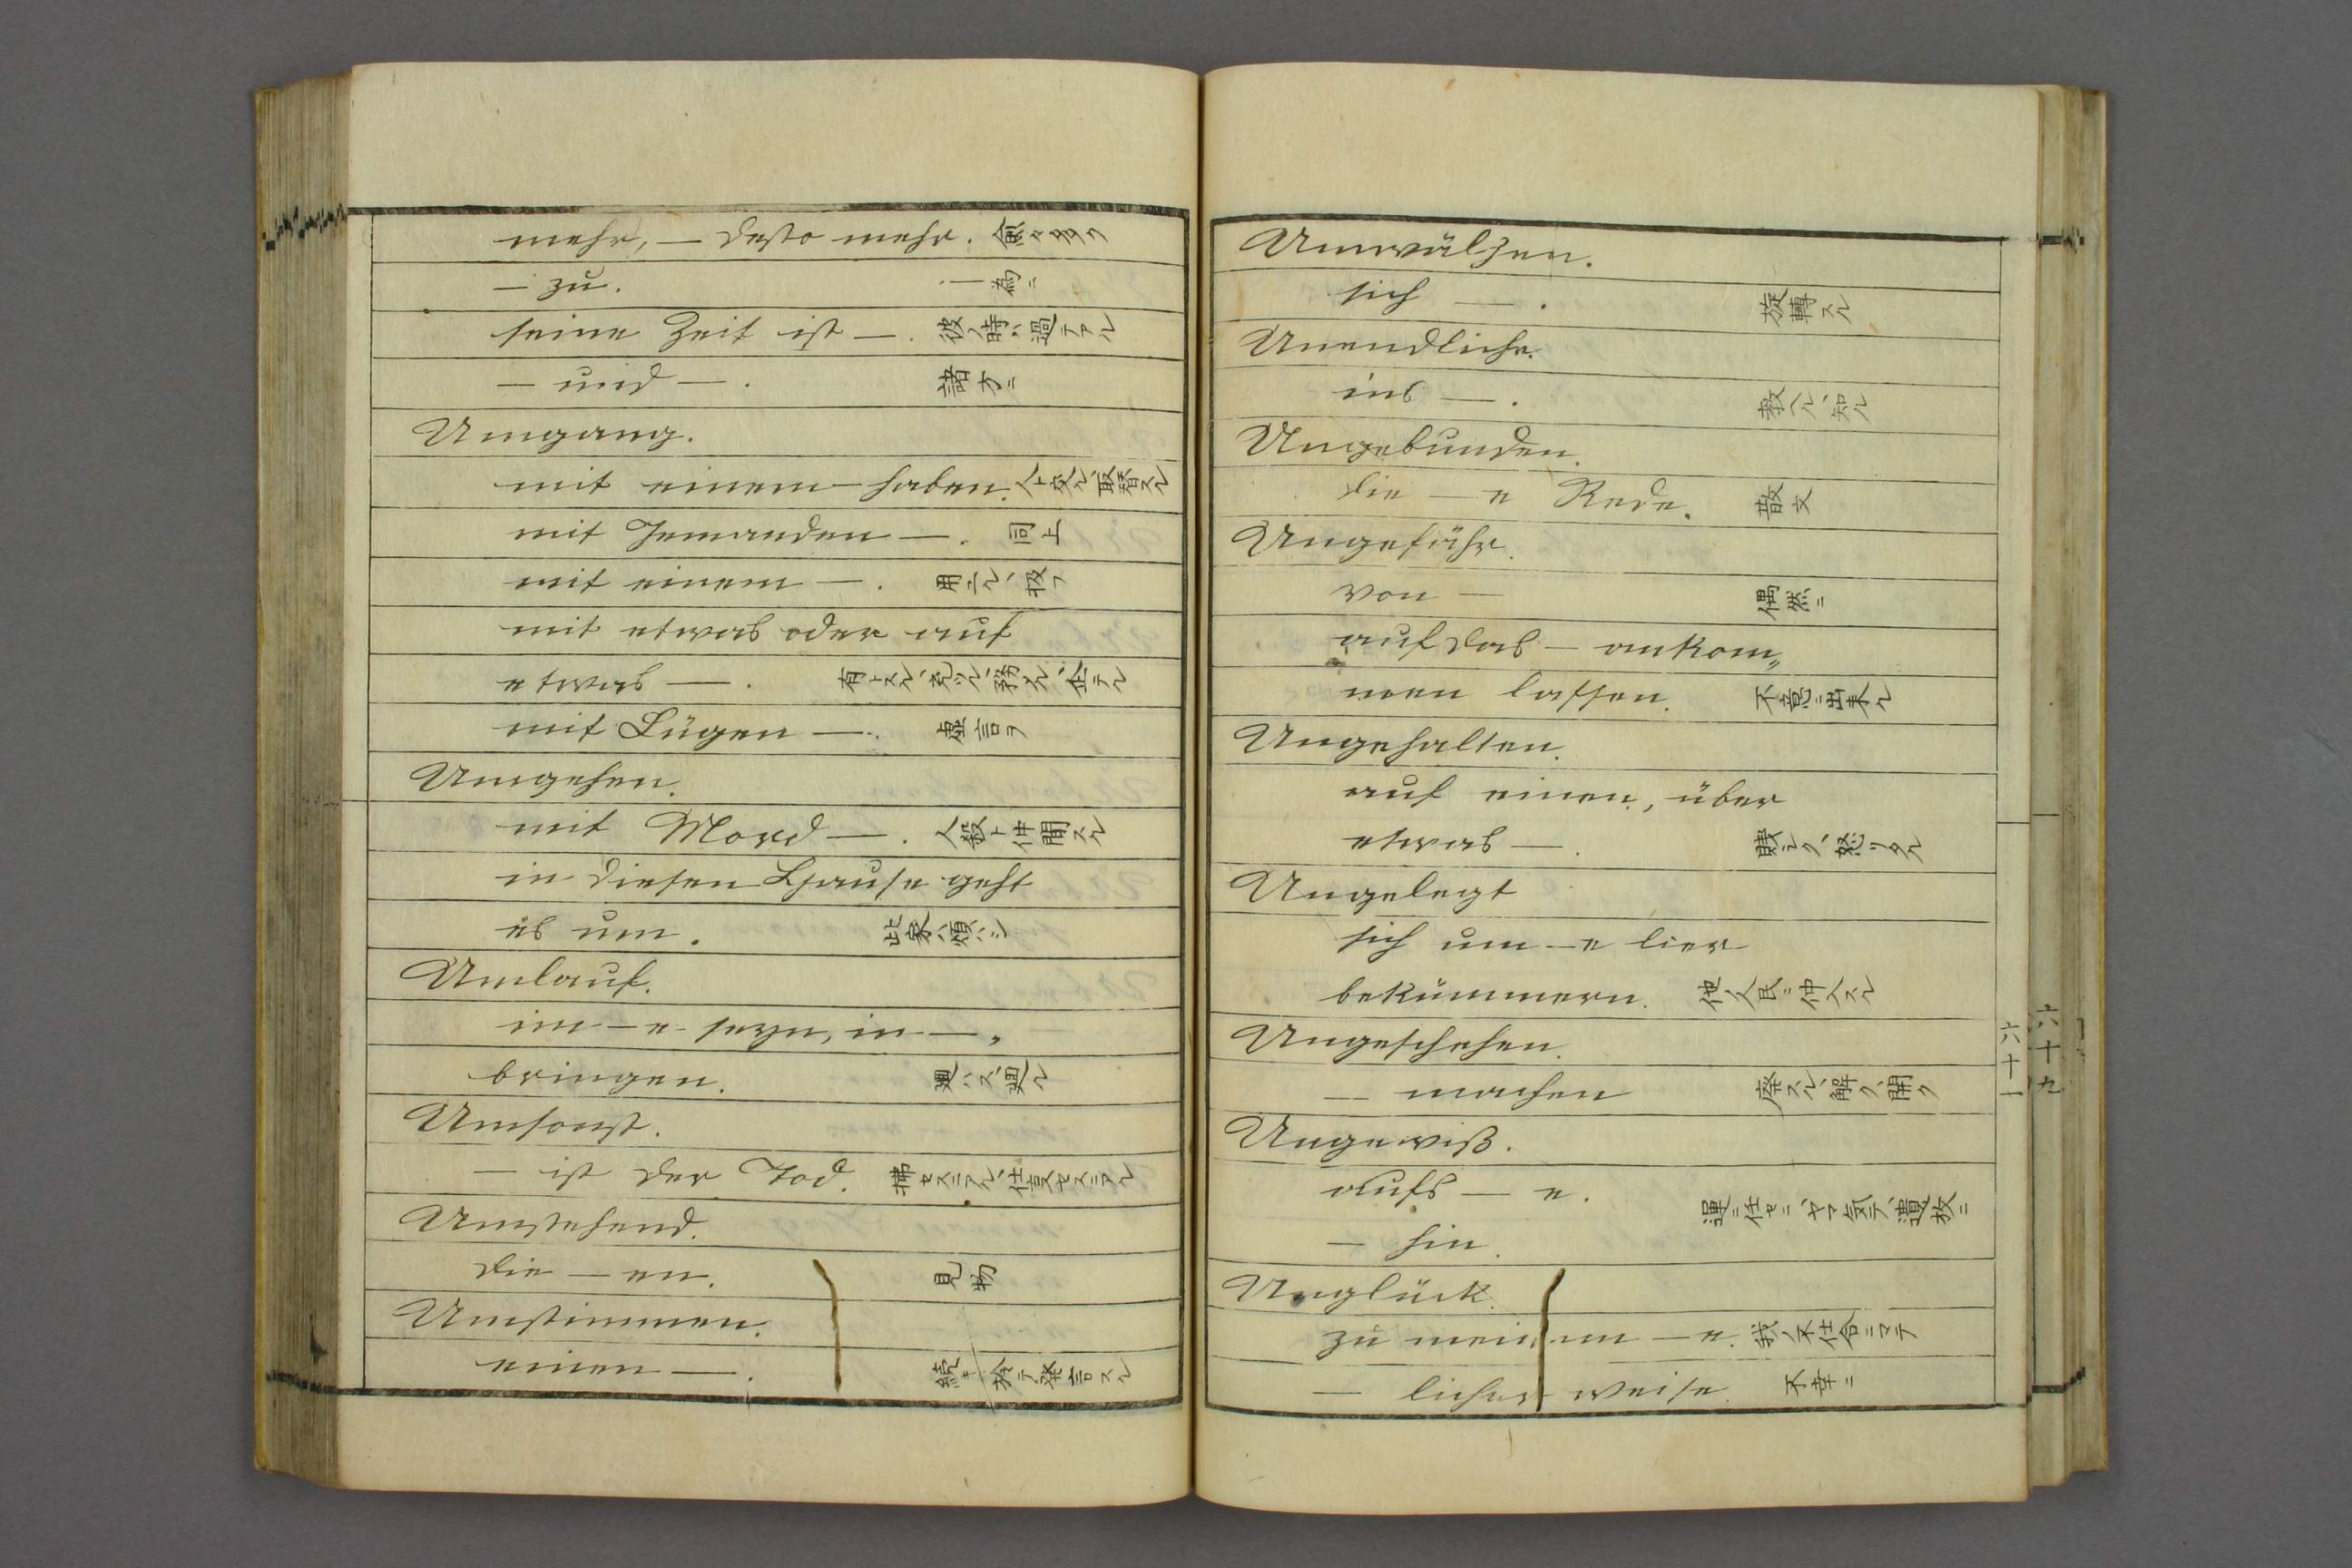 mehr, — desto mehr. 愈々多ク
— zu. — 為ニ
seine Zeit ist —. 彼ノ時ハ過テアル
— und —. 諸方ニ
Umgang.
mit einem — haben. 人ト交ル、取替スル
mit Jemanden —. 同上
mit einem —. 用ユル、扱フ
mit etwas oder auf
etwas —. 企テル
mit Lügen —. 虚言ヲ
Umgehen.
mit Mord —. 人殺ト仲間スル
in diesen Hause geht
es um. 此家ハ
Umlauf.
im — e seyn, in —„
bringen. 廻ハス、廻ル
Umsonst.
— ist der Tod.
Umstehend.
die — en. 見物
Umstimmen.
einen —. 発言スル
Umwälzen.
sich —. 旋轉スル
Unendliche.
ins —. 教ヘル、知ル
Ungebunden.
die — e Rede. 散文
Ungefähr.
von — 偶然ニ
auf das — ankom„
men lassen. 不意ニ出来ル
Ungehalten.
auf einen, über
etwas —. 怒リタル
Ungelegt
sich um — e Eier
bekümmern.
Ungeschehen.
— machen 廃スル、解ク、開ク
Ungewiß.
aufs — e.
— hin.
Unglück.
zu meinem — e. 我ノ不仕合ニマテ
— licher weise. 不幸ニ
六十一
六十九